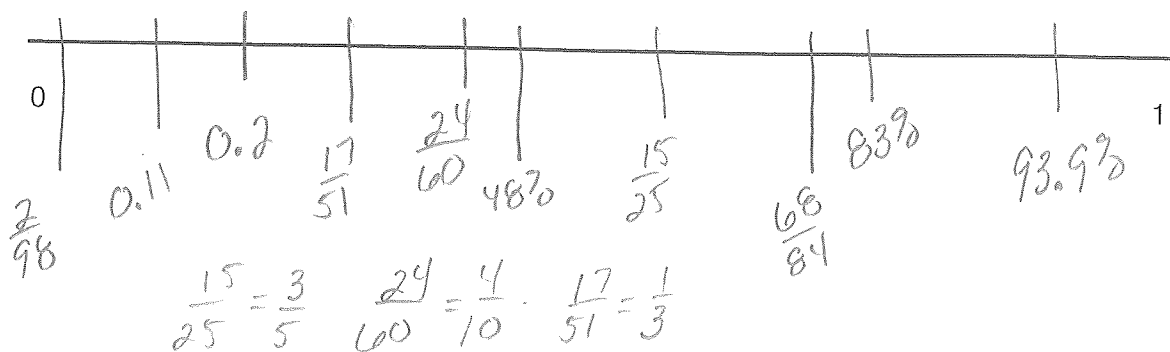 0 1
2/98 0.11 0.2 17/51 24/60 48% 15/25 68/84 83% 93.9%
15/25 = 3/5 24/60 = 4/10 · 17/51 = 1/3